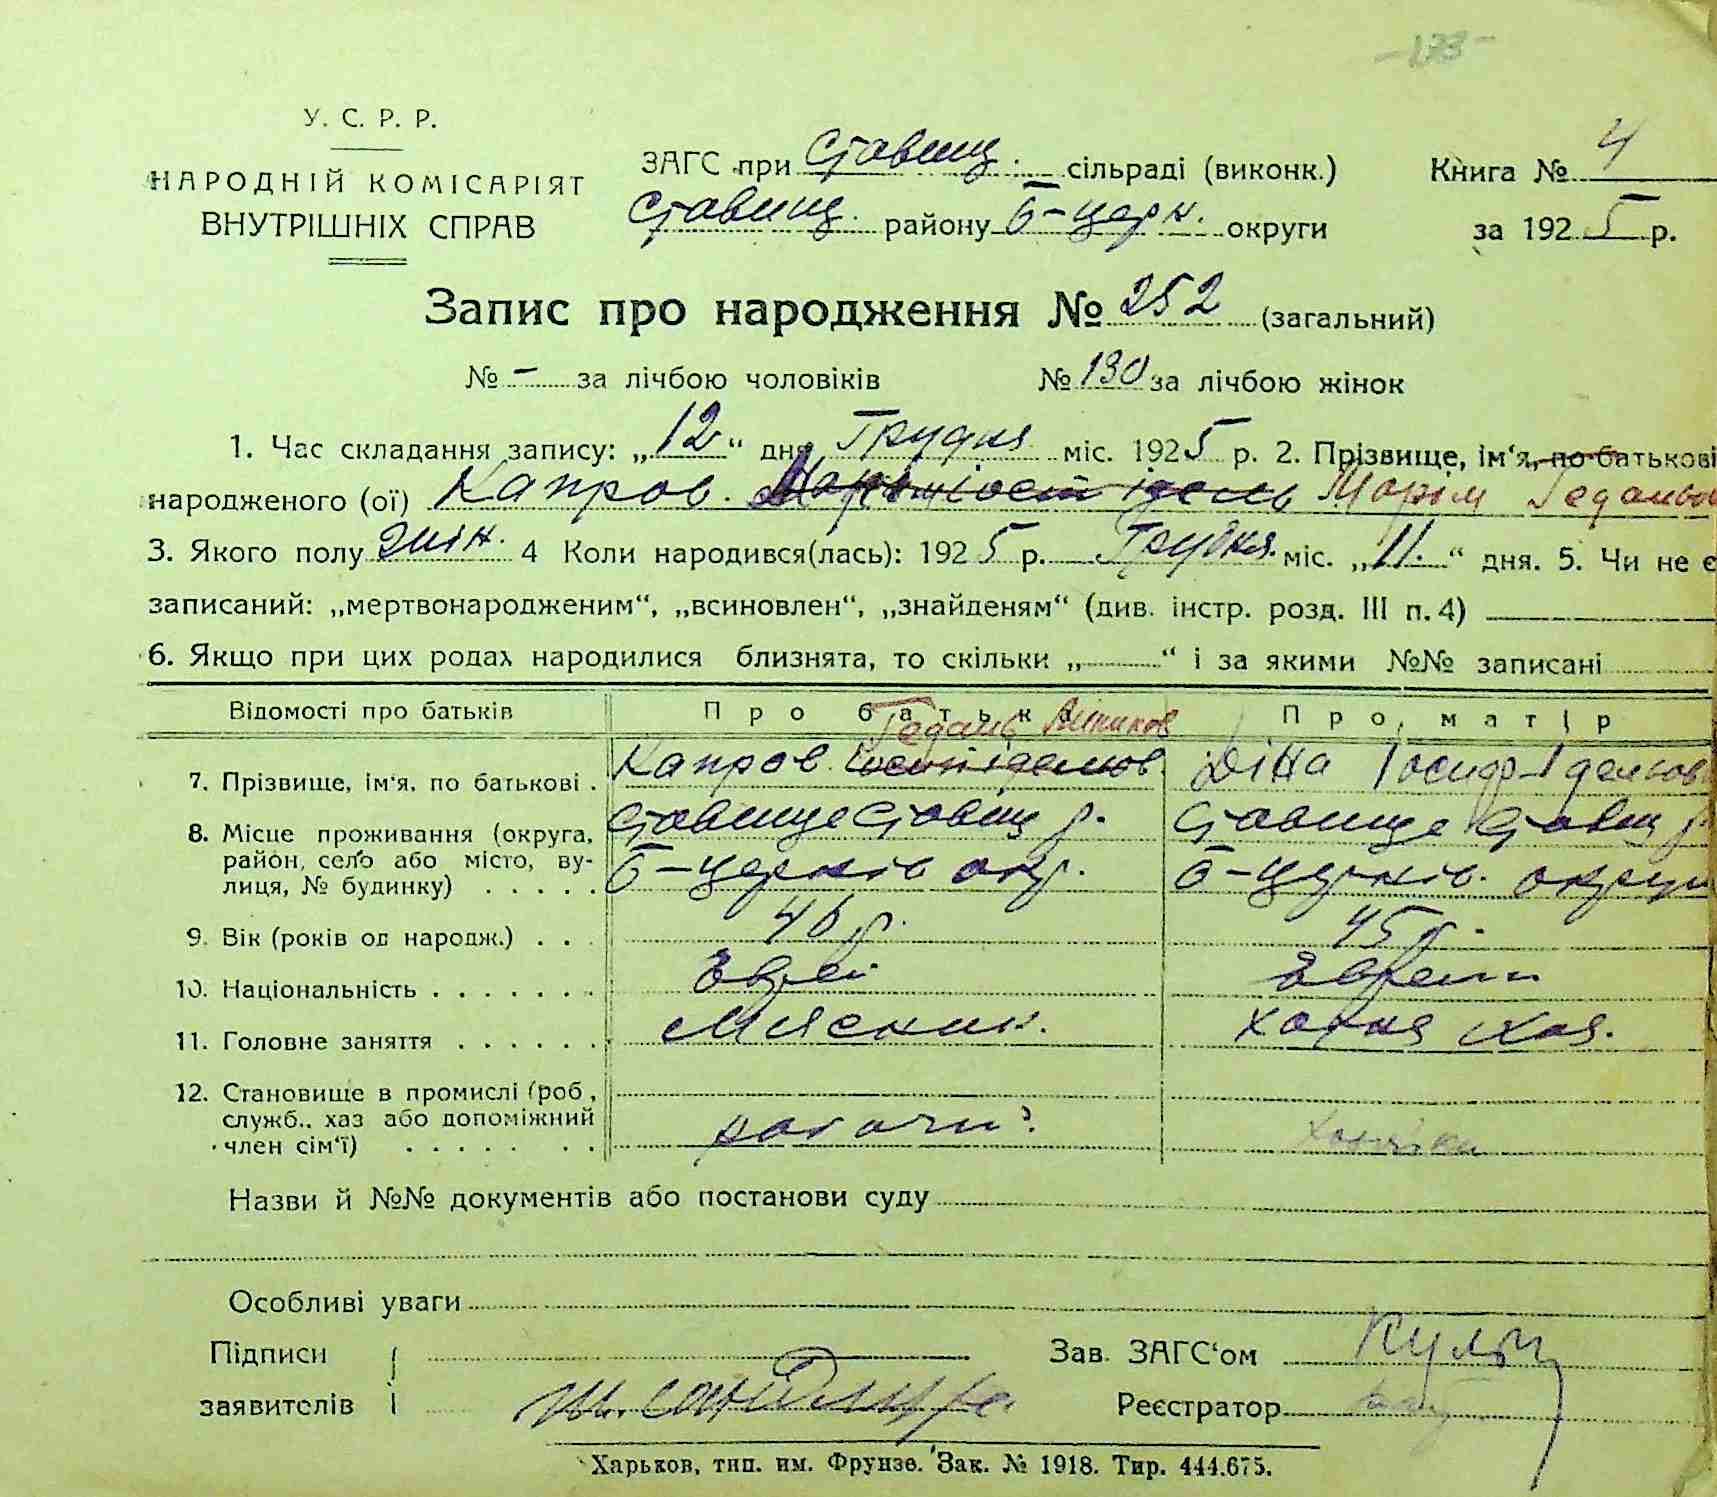 -173-
У. С. Р. Р.
НАРОДНІЙ КОМІСАРІЯТ
ВНУТРІШНІХ СПРАВ
ЗАГС при Ставищ. сільраді (виконк.)
Ставищ. району Б-церк. округи
Книга № 4
за 1925 р.
Запис про народження № 252 (загальний)
№ - за лічбою чоловіків № 130 за лічбою жінок
1. Час складання запису: „12“ дня Грудня міс. 1925 р. 2. Прізвище, ім‘я, по батькові
народженого (ої) Капров. Марім Гедальов
3. Якого полу жін. 4 Коли народився(лась): 1925 р. Грудня. міс. „11.“ дня. 5. Чи не є
записаний: „мертвонародженим“, „всиновлен“, „знайденям“ (див. інстр. розд. III п. 4)
6. Якщо при цих родах народилися близнята, то скільки „ “ і за якими №№ записані
Відомості про батьків Про батька Про матір
Гедаль
7. Прізвище, ім‘я, по батькові . Капров Діна Іосиф-Іделов
8. Місце проживання (округа, Ставище Ставищ р. Ставище Ставищ р.
район, село або місто, ву-
лиця, № будинку) . . . . . Б-церків окр. Б-церків. округи
9. Вік (років од народж.) . . . 46 р. 45 р.
10. Національність . . . . . . . Еврей Еврейк
11. Головне заняття . . . . . . Мясник. хатня хоз.
12. Становище в промислі (роб,
служб.. хаз або допоміжний
член сім‘ї) . . . . . . . робочий хозяйка
Назви й №№ документів або постанови суду
Особливі уваги
Підписи
заявителів
Зав. ЗАГС‘ом
Реєстратор
Харьков, тип. им. Фрунзе. Зак. № 1918. Тир. 444.675.